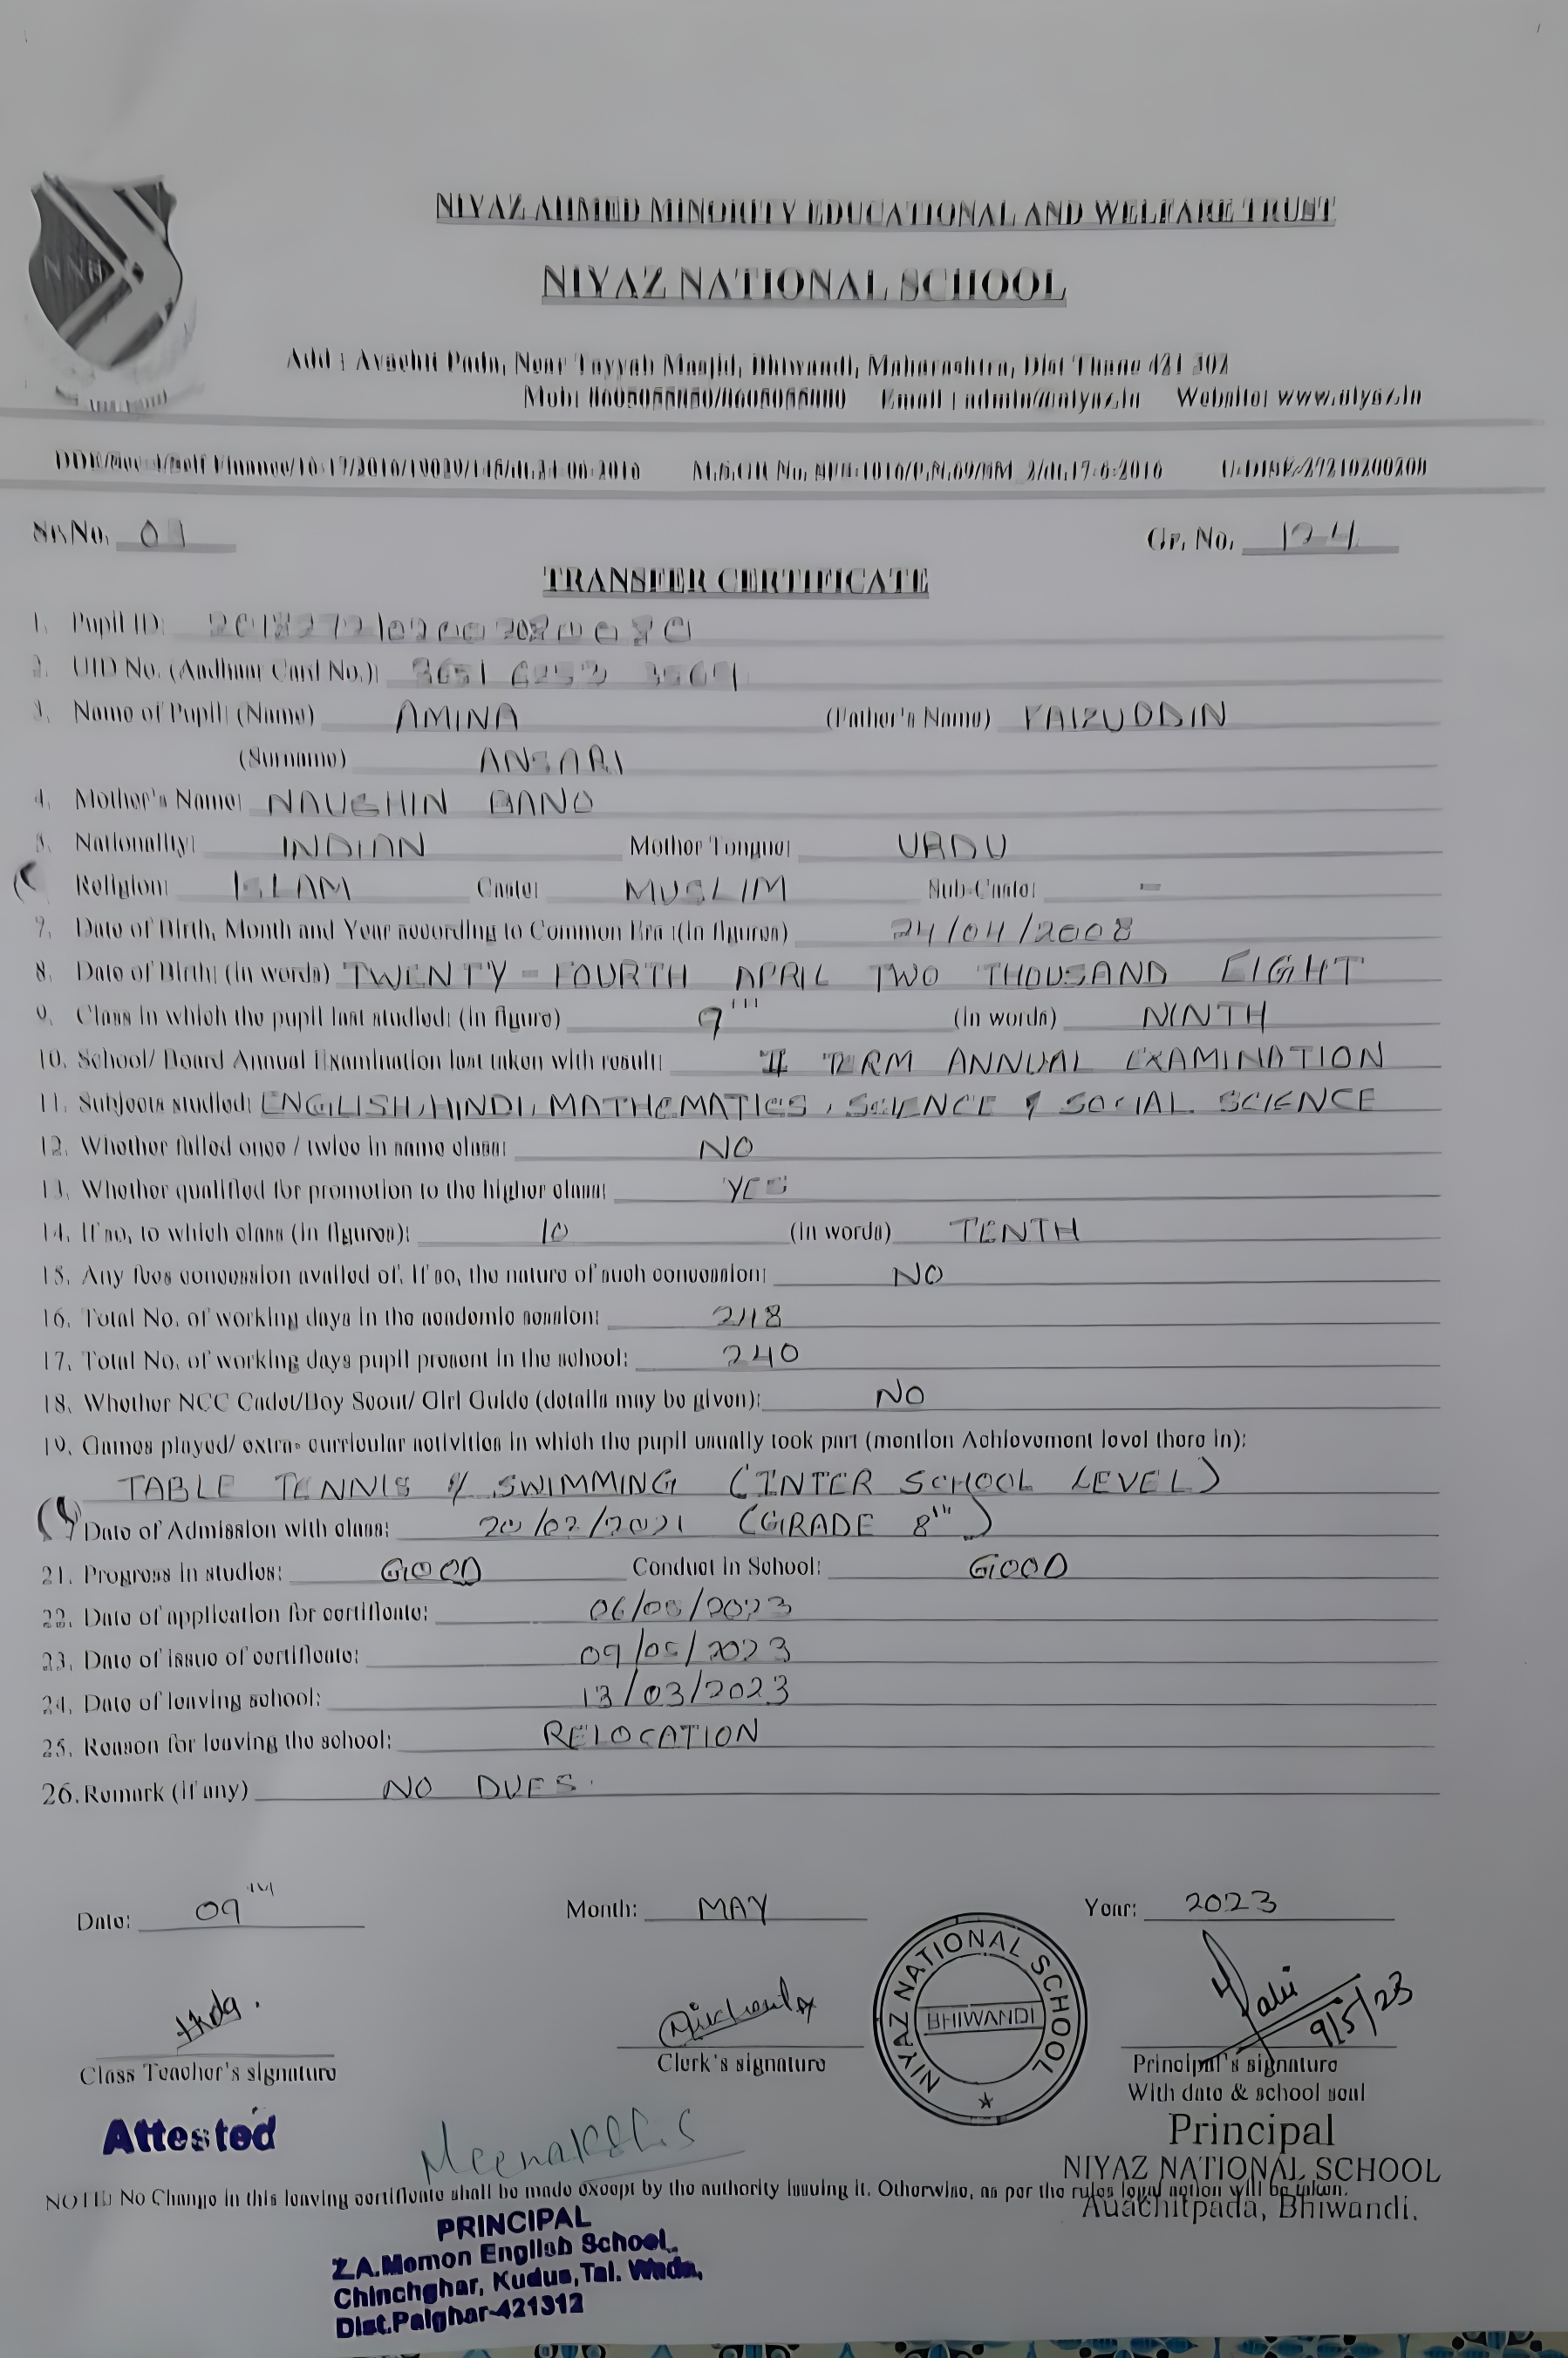 NIYAZ AHMED MINORITY EDUCATIONAL AND WELFARE TRUST
NIYAZ NATIONAL SCHOOL
Near Tayyab Masjid, Bhiwandi, Maharashtra, Dist Thane 421 302
Sr. No. 01 Gr. No. 124
TRANSFER CERTIFICATE
1. Pupil ID:
2. UID No. (Aadhaar Card No.):
3. Name of Pupil: (Name) AMINA (Father's Name) FAIZUDDIN
(Surname) ANSARI
4. Mother's Name: NAUSHIN BANO
5. Nationality: INDIAN Mother Tongue: URDU
Religion: ISLAM Caste: MUSLIM Sub-Caste: -
7. Date of Birth, Month and Year according to Common Era :(in figures) 24/04/2008
8. Date of Birth: (in words) TWENTY - FOURTH APRIL TWO THOUSAND EIGHT
9. Class in which the pupil last studied: (in figure) 9TH (in words) NINTH
10. School/ Board Annual Examination last taken with result: II TERM ANNUAL EXAMINATION
11. Subjects studied: ENGLISH, HINDI, MATHEMATICS, SCIENCE & SOCIAL SCIENCE
12. Whether failed once / twice in same class: NO
13. Whether qualified for promotion to the higher class: YES
14. If so, to which class (in figures): 10 (in words) TENTH
15. Any fees concession availed of. If so, the nature of such concession: NO
16. Total No. of working days in the academic session:
17. Total No. of working days pupil present in the school: 240
18. Whether NCC Cadet/Boy Scout/ Girl Guide (details may be given): NO
19. Games played/ extra- curricular activities in which the pupil usually took part (mention Achievement level there in):
TABLE TENNIS & SWIMMING (INTER SCHOOL LEVEL)
Date of Admission with class: (GRADE 8th)
21. Progress in studies: GOOD Conduct in School: GOOD
22. Date of application for certificate: 06/05/2023
23. Date of issue of certificate: 09/05/2023
24. Date of leaving school: 13/03/2023
25. Reason for leaving the school: RELOCATION
26. Remark (if any) NO DUES.
Date: 09TH Month: MAY Year: 2023
NIYAZ NATIONAL SCHOOL
BHIWANDI
9/5/23
Class Teacher's signature Clerk's signature Principal's signature
With date & school seal
Attested
Meenakshi S
Principal
NIYAZ NATIONAL SCHOOL
Auachitpada, Bhiwandi.
NOTE: No Change in this leaving certificate shall be made except by the authority issuing it. Otherwise, as per the rules legal action will be taken.
PRINCIPAL
Z.A.Memon English School,
Chinchghar, Kudus, Tal. Wada,
Dist.Palghar-421312